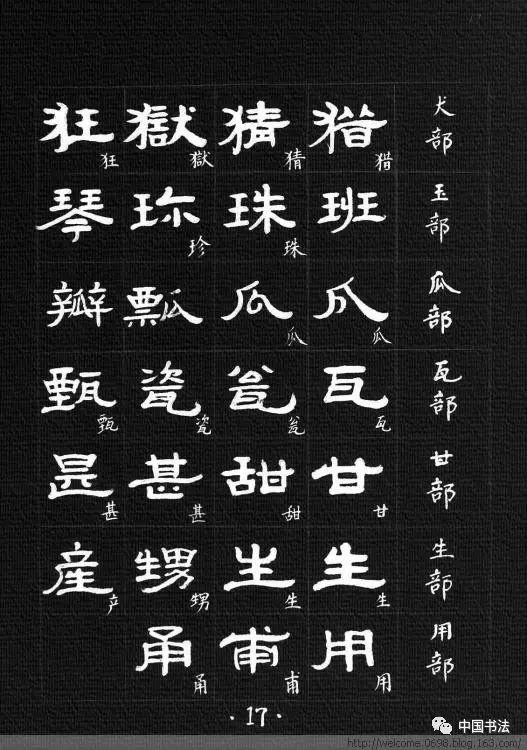 犬部 猎猎 猜猜 獄獄 狂狂
玉部 班 珠珠 珎珍 琴
瓜部 瓜瓜 瓜瓜 瓢 瓣
瓦部 瓦瓦 瓮瓮 瓷瓷 甄甄
甘部 甘甘 甜甜 甚甚 甚
生部 生生 生生 甥甥 産产
用部 用用 甫甫 甬甬
·17·
中国书法
http://welcome.0898.blog.163.com/